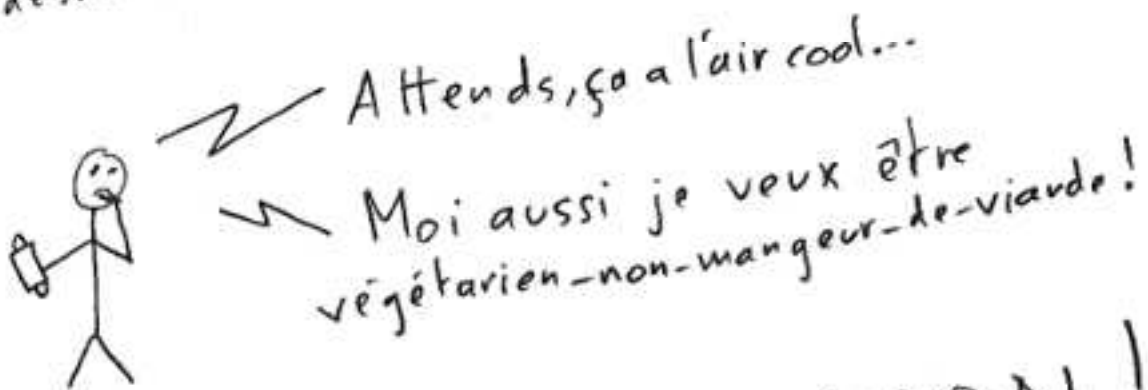 Attends, ça a l'air cool...
Moi aussi je veux être
végétarien-non-mangeur-de-viande!